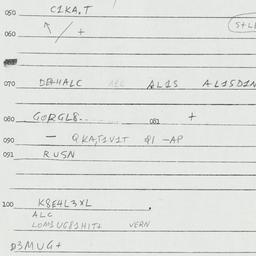 050 C1KA.T
060 +
070 DEHALC AL1S AL1SD1N
080 GORGL8. 081 +
090 — QKA,T1V1T Q1 -AP
091 RUSN
100 K8E4L3XL
ALC
LOM1UG81H1T+ VERN
D3MUG+